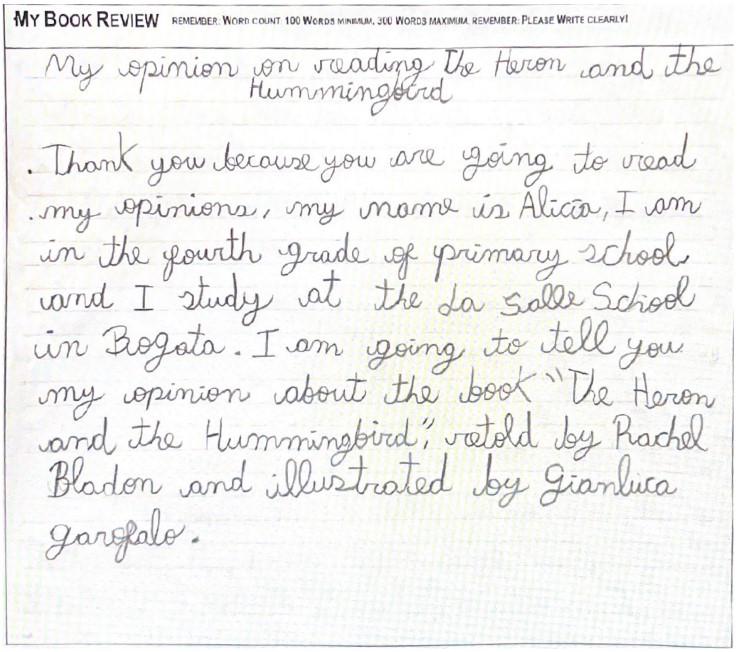 MY BOOK REVIEW REMEMBER: WORD COUNT 100 WORDS MINIMUM, 300 WORDS MAXIMUM, REMEMBER: PLEASE WRITE CLEARLY!
My opinion on reading The Heron and the
Hummingbird
. Thank you because you are going to read
. my opinions, my name is Alicia, I am
in the fourth grade of primary school
and I study at the La Salle School
in Bogota. I am going to tell you
my opinion about the book "The Heron
and the Hummingbird", retold by Rachel
Bladon and illustrated by Gianluca
garofalo.